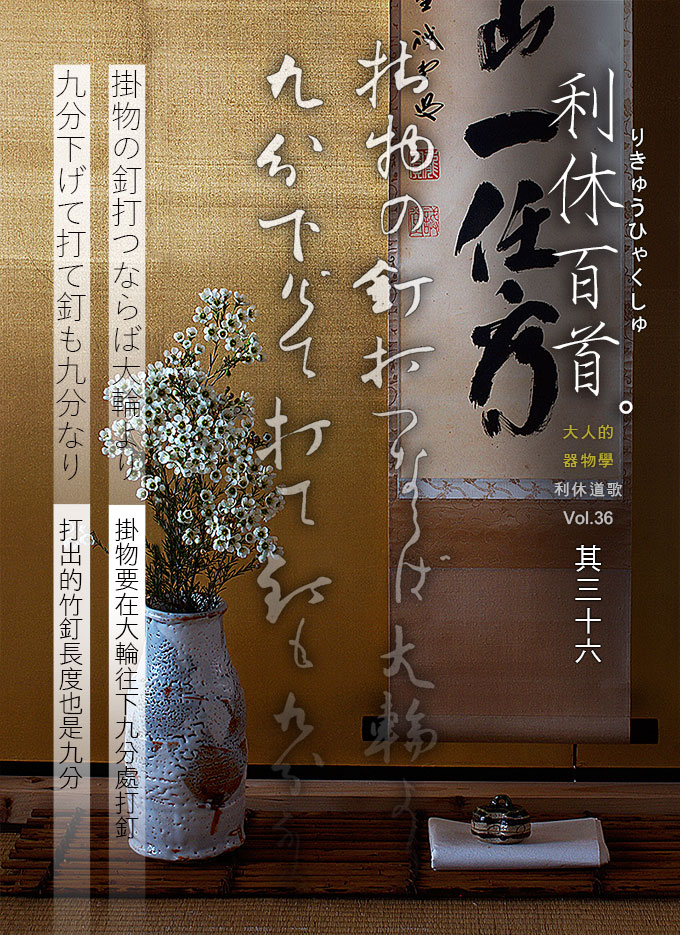 利休百首。
りきゅうひゃくしゅ
大人的
器物學
利休道歌
Vol.36
其三十六
山一任方
掛物の釘打つならば大輪よ
九分下げて打て釘も九分な
掛物の釘打つならば大輪より
九分下げて打て釘も九分なり
掛物要在大輪往下九分處打釘
打出的竹釘長度也是九分